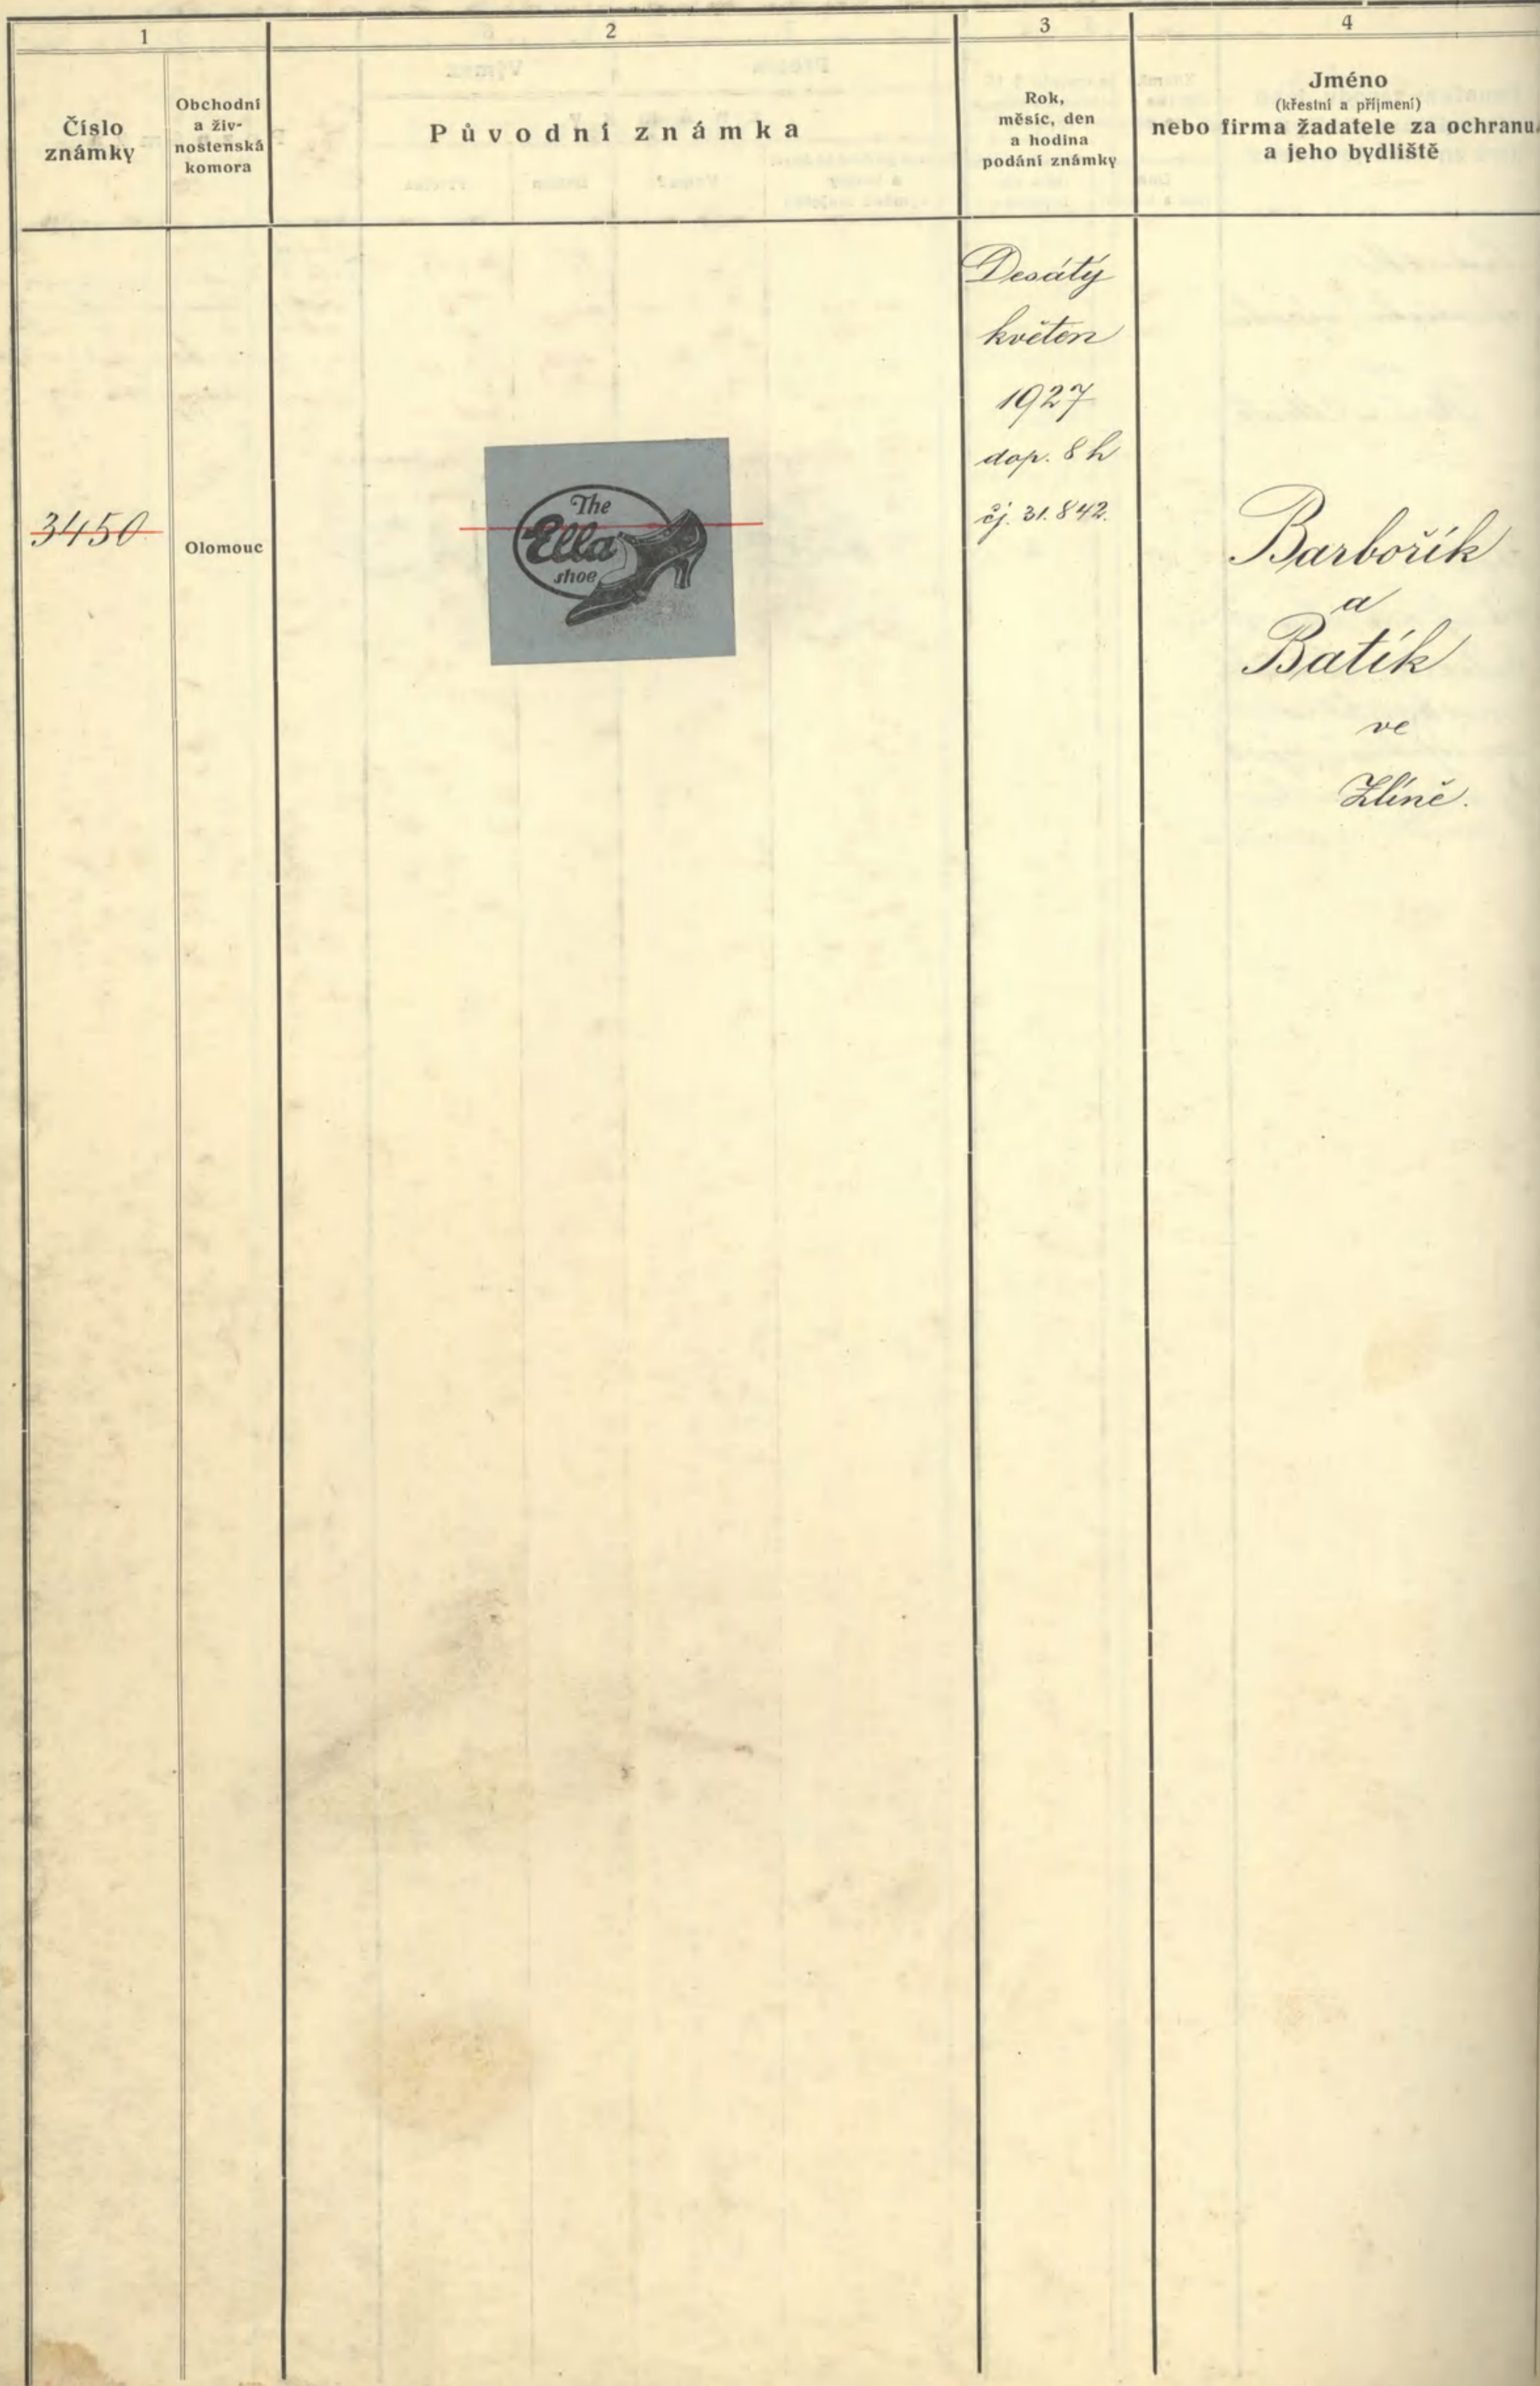 1
2
3
4
Číslo
známky
Obchodní
a živ-
nostenská
komora
Původní známka
Rok,
měsíc, den
a hodina
podání známky
Jméno
(křestní a příjmení)
nebo firma žadatele za ochranu
a jeho bydliště
3450
Olomouc
The
Ella
shoe
Desátý
květen
1927
dop. 8 h
čj. 31.842.
Barbořík
a
Batík
ve
Zlíně.